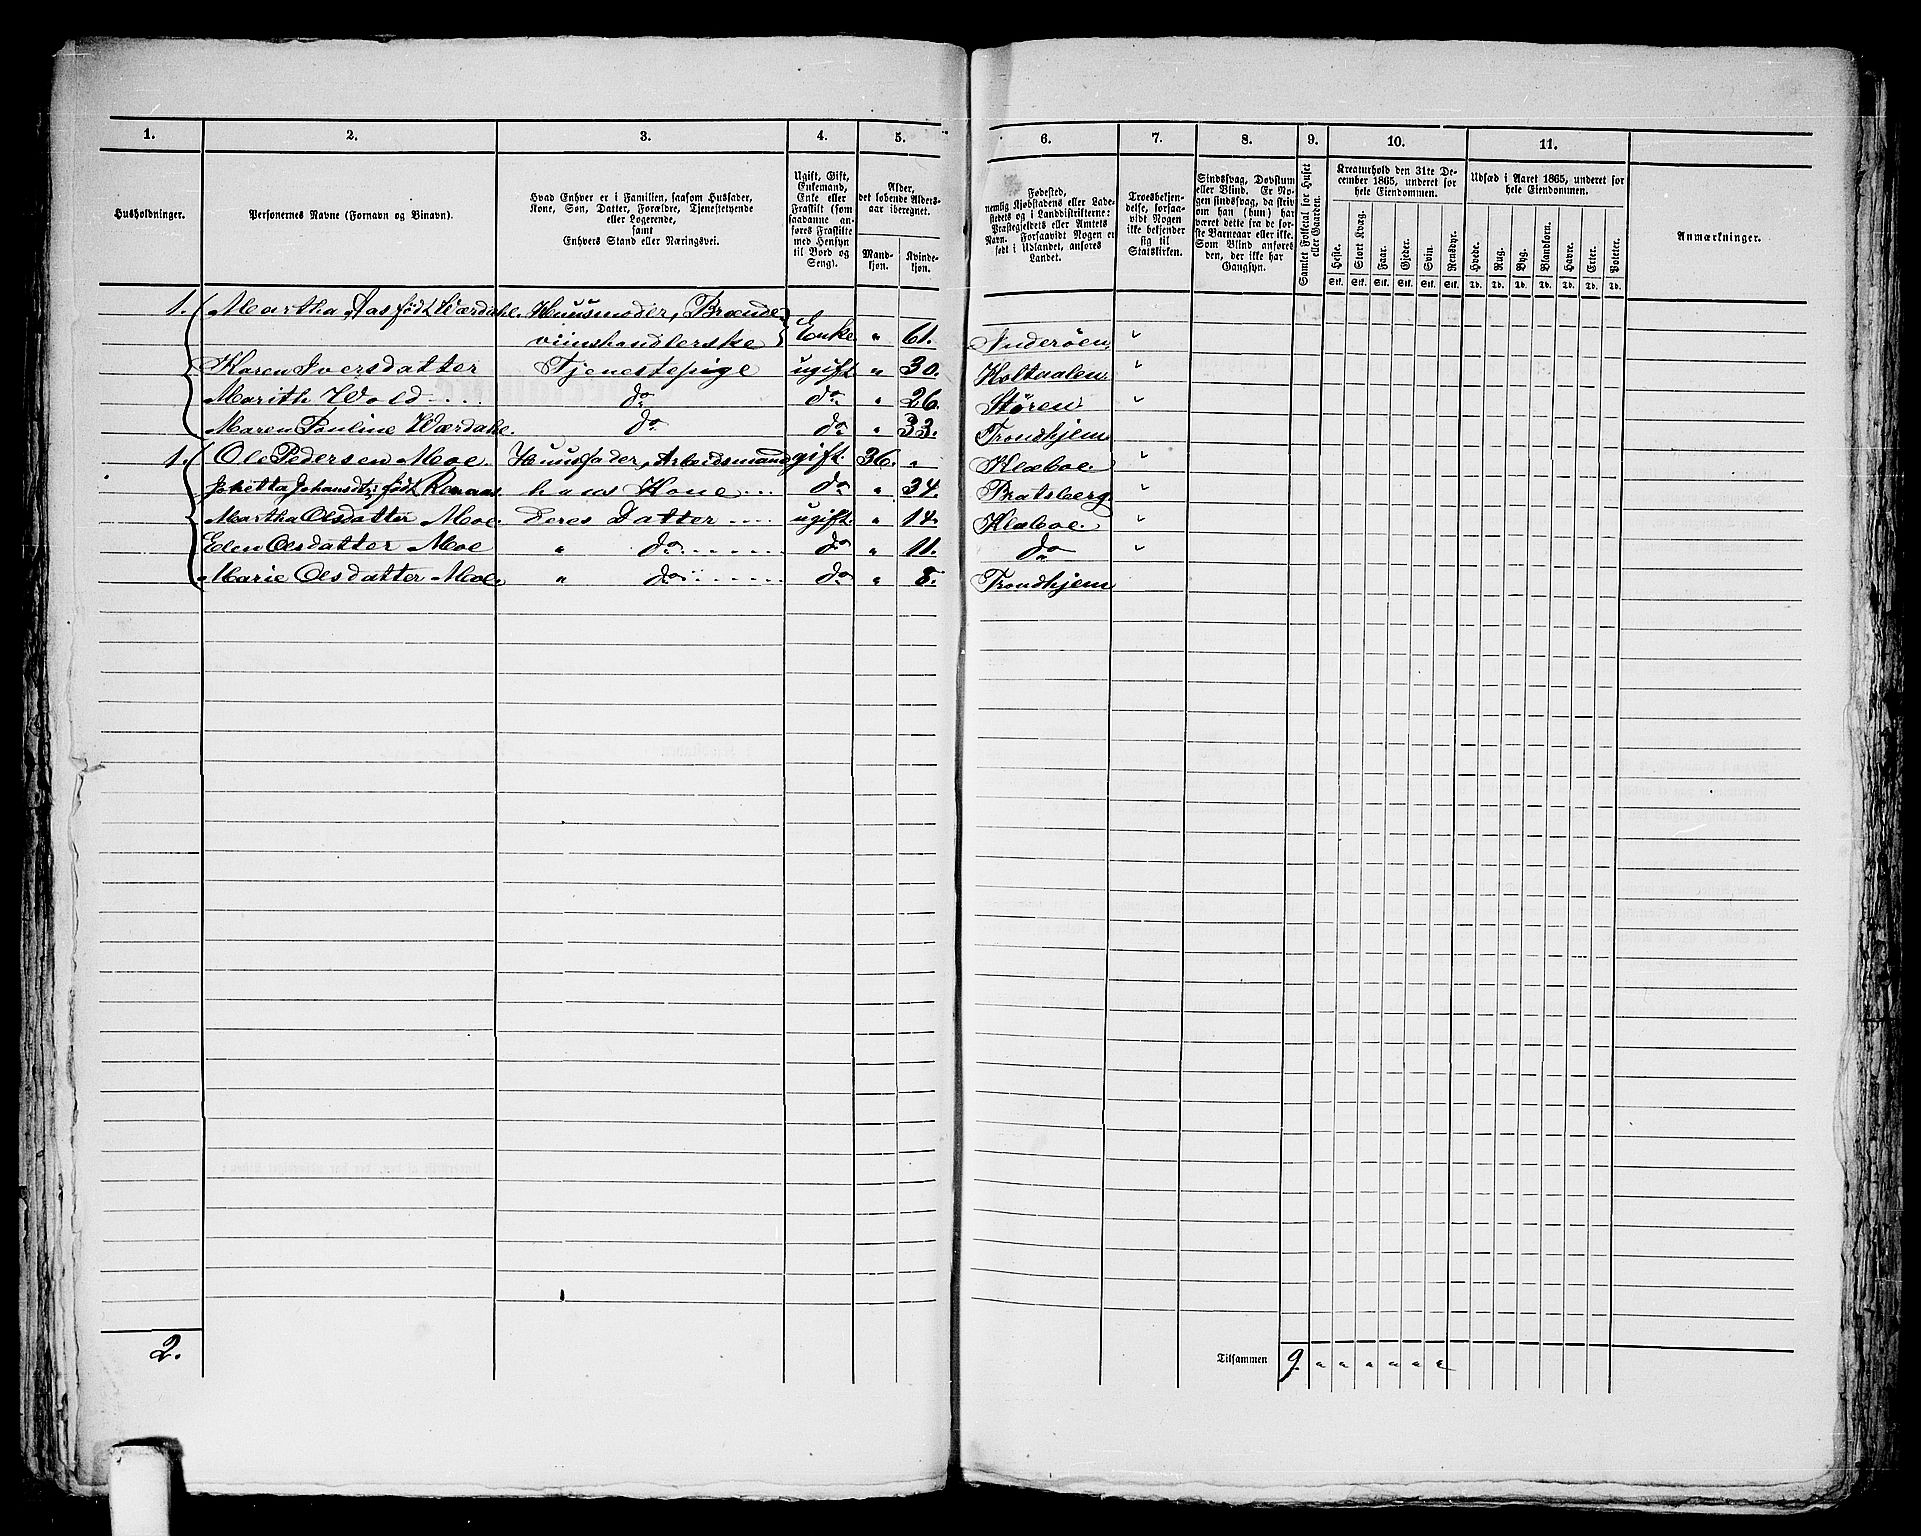 1. 2. 3. 4. 5. 6. 7. 8. 9. 10. 11.
Husholdninger.
Personernes Navne (Fornavn og Binavn).
Hvad Enhver er i Familien, saasom Husfader,
Kone, Søn, Datter, Forældre, Tjenestetyende
eller Logerende,
samt
Enhvers Stand eller Næringsvei.
Ugift, Gift,
Enkemand,
Enke eller
Fraskilt (som
saadanne an-
føres Fraskilte
med Hensyn
til Bord og
Seng).
Alder,
det løbende Alders-
aar iberegnet.
Mand-
kjøn.
Kvinde-
kjøn.
Fødested,
nemlig Kjøbstadens eller Lade-
stedets og i Landdistrikterne:
Præstegjeldets eller Amtets
Navn. Forsaavidt Nogen er
født i Udlandet, anføres
Landet.
Troesbekjen-
delse, forsaa-
vidt Nogen
ikke bekjender
sig til
Statskirken.
Sindssvag, Døvstum
eller Blind. Er No-
gen sindssvag, da skriv
om han (hun) har
været dette fra de før-
ste Barneaar eller ikke.
Som Blind anføres
den, der ikke har
Gangsyn.
Samlet Folketal for Huset
eller Gaarden.
Kreaturhold den 31te De-
cember 1865, underet for
hele Eiendommen.
Heste. Stort Kvæg. Faar. Gjeder. Svin. Rensdyr.
Stk. Stk. Stk. Stk. Stk. Stk.
Udsæd i Aaret 1865, underet for
hele Eiendommen.
Hvede. Rug. Byg. Blandkorn. Havre. Erter. Poteter.
Td. Td. Td. Td. Td. Td. Td.
Anmærkninger.
1. Martha Aas født Værdahl. Huusmoder, Brænde-
viinshandlerske Enke " 61. Inderøen "
Karen Iversdatter Tjenestepige ugift " 30. Holtaalen "
Marith Wold do do " 26. Støren "
Maren Pauline Værdahl. do do " 33. Trondhjem
1. Ole Pedersen Moe. Huusfader, Arbeidsmand gift. 36. " Klæboe. "
Johansdtr. født hans Kone do " 34. Bratsberg. "
Martha Olsdatter Moe. Deres Datter ugift. " 14. Klæboe. "
Elen Olsdatter Moe " do do " 11. do "
Marie Olsdatter Moe. " do do " 8. Trondhjem
2. Tilsammen 9. " " " " " "